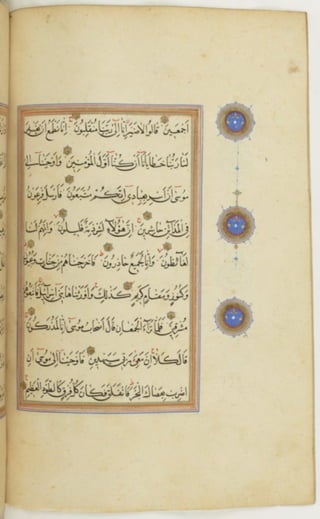 اجمعين قالوا لا ضير انا الى ربنا منقلبون انا نطمع ان يغفر
لنا ربنا خطايانا ان كنا اول المؤمنين واوحينا الى
موسى ان اسر بعبادى انكم متبعون فارسل فرعون
فى المدائن حاشرين ان هؤلاء لشرذمة قليلون وانهم لنا
لغائظون وانا لجميع حاذرون فاخرجناهم من جنات وعيون
وكنوز ومقام كريم كذلك واورثناها بنى اسرائيل فاتبعوهم
مشرقين فلما تراءا الجمعان قال اصحاب موسى انا لمدركون
قال كلا ان معى ربى سيهدين فاوحينا الى موسى ان
اضرب بعصاك البحر فانفلق فكان كل فرق كالطود العظيم